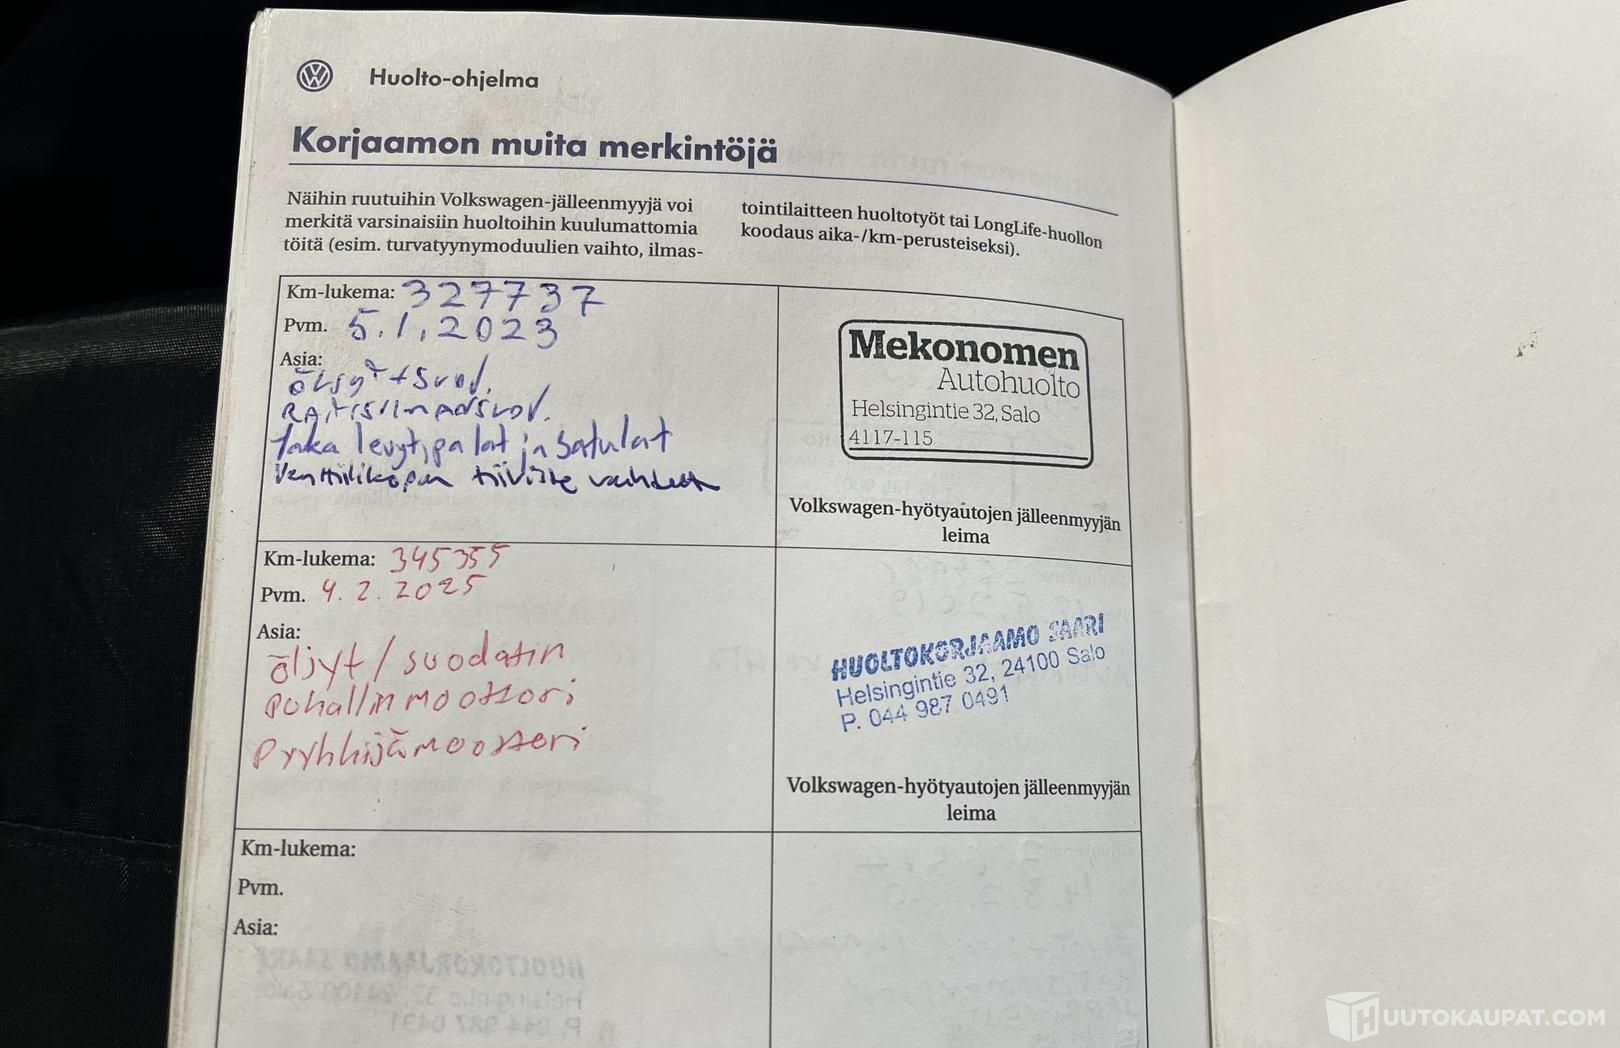 Huolto-ohjelma
Korjaamon muita merkintöjä
Näihin ruutuihin Volkswagen-jälleenmyyjä voi
merkitä varsinaisiin huoltoihin kuulumattomia
töitä (esim. turvatyynymoduulien vaihto, ilmas-
tointilaitteen huoltotyöt tai LongLife-huollon
koodaus aika-/km-perusteiseksi).
Km-lukema: 327737
Pvm. 5.1.2023
Asia:
öljyt + suod.
Raitisilmansuod.
Taka levyt, palat ja satulat
Venttilikopan tiiviste
Mekonomen
Autohuolto
Helsingintie 32, Salo
4117-115
Volkswagen-hyötyautojen jälleenmyyjän
leima
Km-lukema: 345355
Pvm. 4.2.2025
Asia:
öljyt / suodatin
Puhallinmoottori
Pyyhkijämoottori
HUOLTOKORJAAMO SAARI
Helsingintie 32, 24100 Salo
P. 044 987 0491
Volkswagen-hyötyautojen jälleenmyyjän
leima
Km-lukema:
Pvm.
Asia:
HUUTOKAUPAT.COM